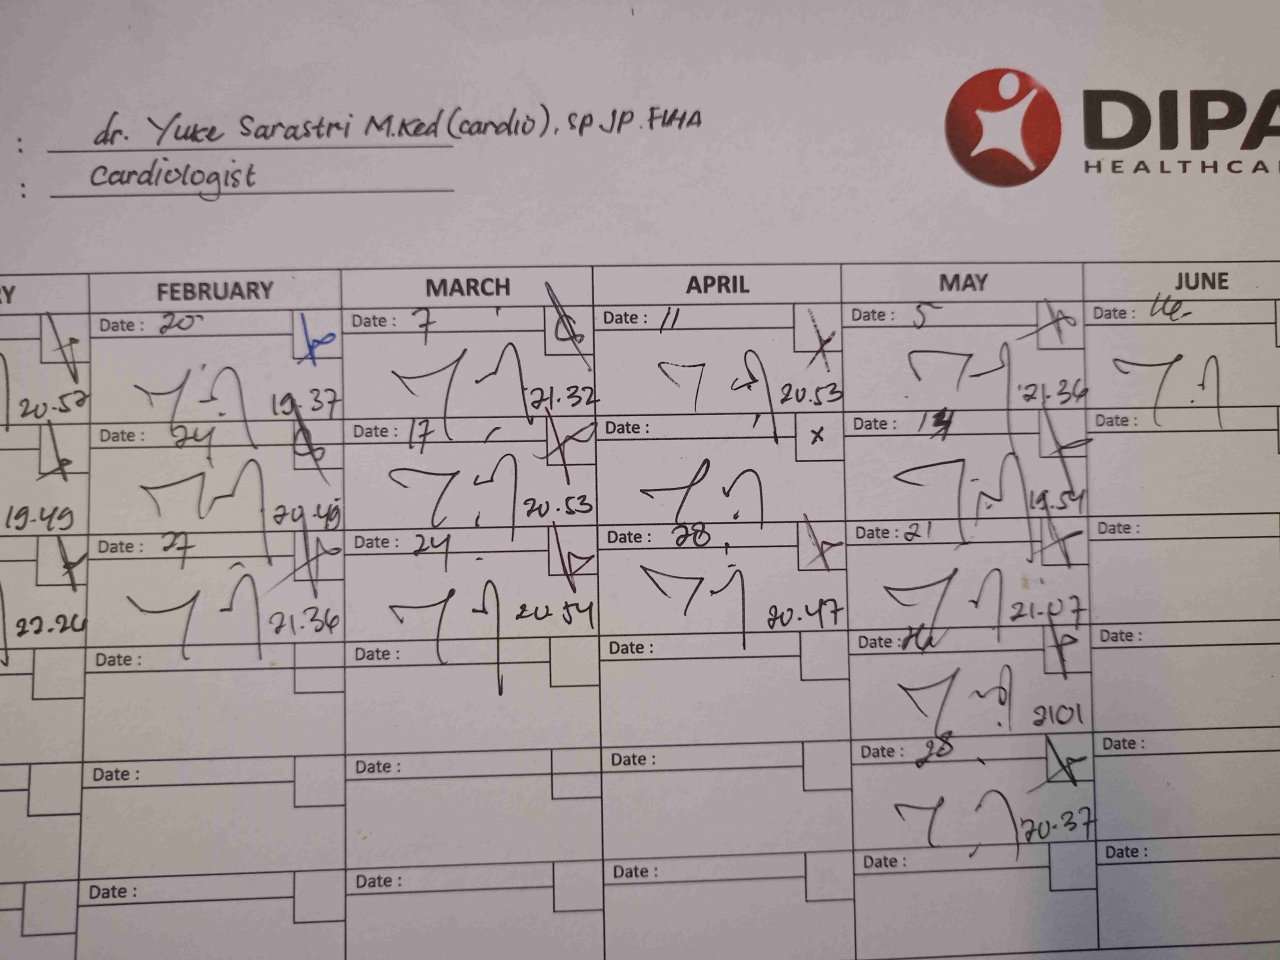 : dr. Yuke Sarastri M.Ked(cardio), SpJP.FIHA
: Cardiologist
DIPA
HEALTHCA
RY FEBRUARY MARCH APRIL MAY JUNE
Date : 20 Date : 7 Date : 11 Date : 5 Date :
20.52 19.37 21.32 20.53 21.36
Date : 24 Date : 17 Date : x Date : Date :
19.49 20.49 20.53 19.54
Date : 27 Date : 24 Date : 28 Date : 21 Date :
22.24 21.36 20.54 20.47 21.07
Date : Date : Date : Date : Date :
2101
Date : Date : Date : Date : 28 Date :
20.37
Date : Date : Date : Date : Date :